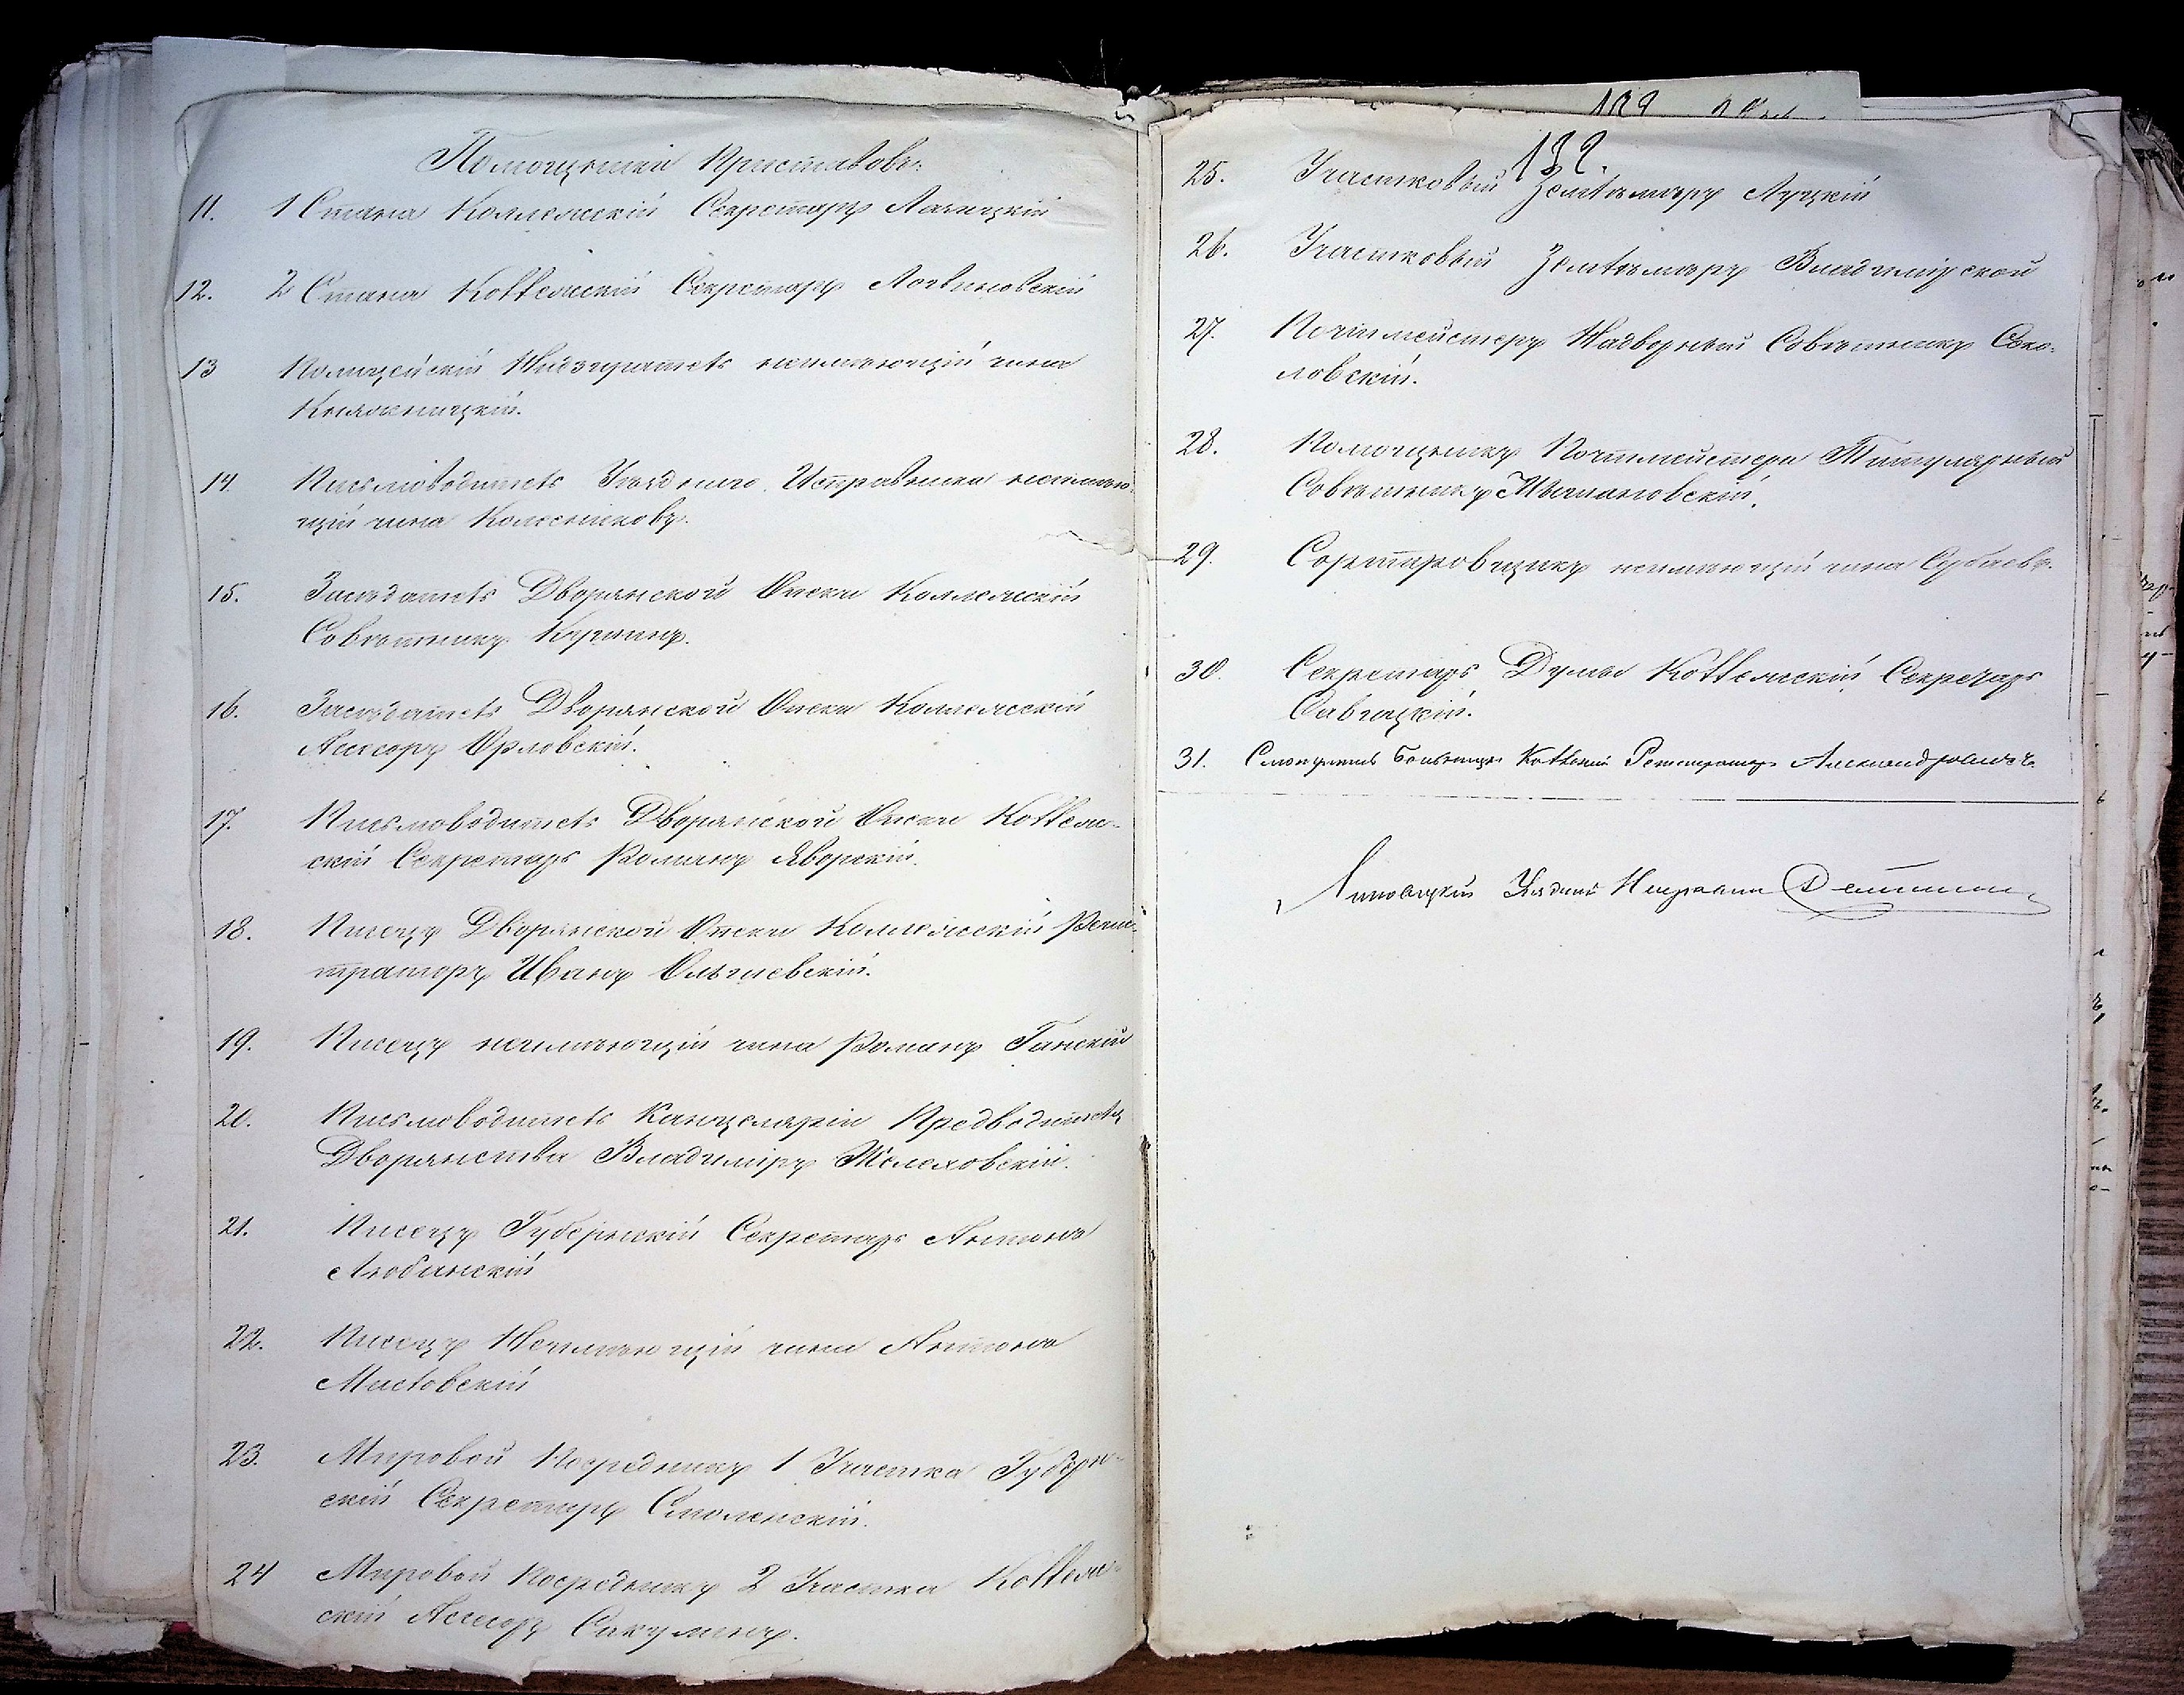 Помощники Приставовъ:
11. 1 Стана Коллежскій Секретарь
12. 2 Стана Коллежскій Секретарь Логвиновскій
13 Полицейскій Надзиратель неимѣющій чина
14. Письмоводитель Уѣзднаго Исправника неимѣю-
щій чина Колесниковъ.
15. Засѣдатель Дворянской Опеки Коллежскій
Совѣтникъ
16. Засѣдатель Дворянской Опеки Коллежскій
Ассесоръ Орловскій.
17. Письмоводитель Дворянской Опеки Коллеж-
скій Секретарь Романъ Яворскій.
18. Писецъ Дворянской Опеки Коллежскій Реги-
страторъ Иванъ Ольшевскій.
19. Писецъ неимѣющій чина Романъ Ганскій
20. Письмоводитель Канцеляріи Предводителя
Дворянства Владиміръ Желеховскій.
21. Писецъ Губернскій Секретарь Антонъ
Любанскій
22. Писецъ Неимѣющій чина Антонъ
23. Мировой Посредникъ 1 Участка Губерн-
скій Секретарь Смоленскій.
24 Мировой Посредникъ 2 Участка Коллеж-
скій Ассесоръ
132.
25. Участковый Землемѣръ Луцкій
26. Участковый Землемѣръ Владимірской
27. Почтмейстеръ Надворный Совѣтникъ Соко-
ловскій.
28. Помощникъ Почтмейстера Титулярный
Совѣтникъ
29. Сортировщикъ неимѣющій чина
30. Секретарь Думы Коллежскій Секретарь
Савицкій.
31. Смотритель Больницы Коллежскій Регистраторъ Александровичъ
Уѣздный Исправникъ